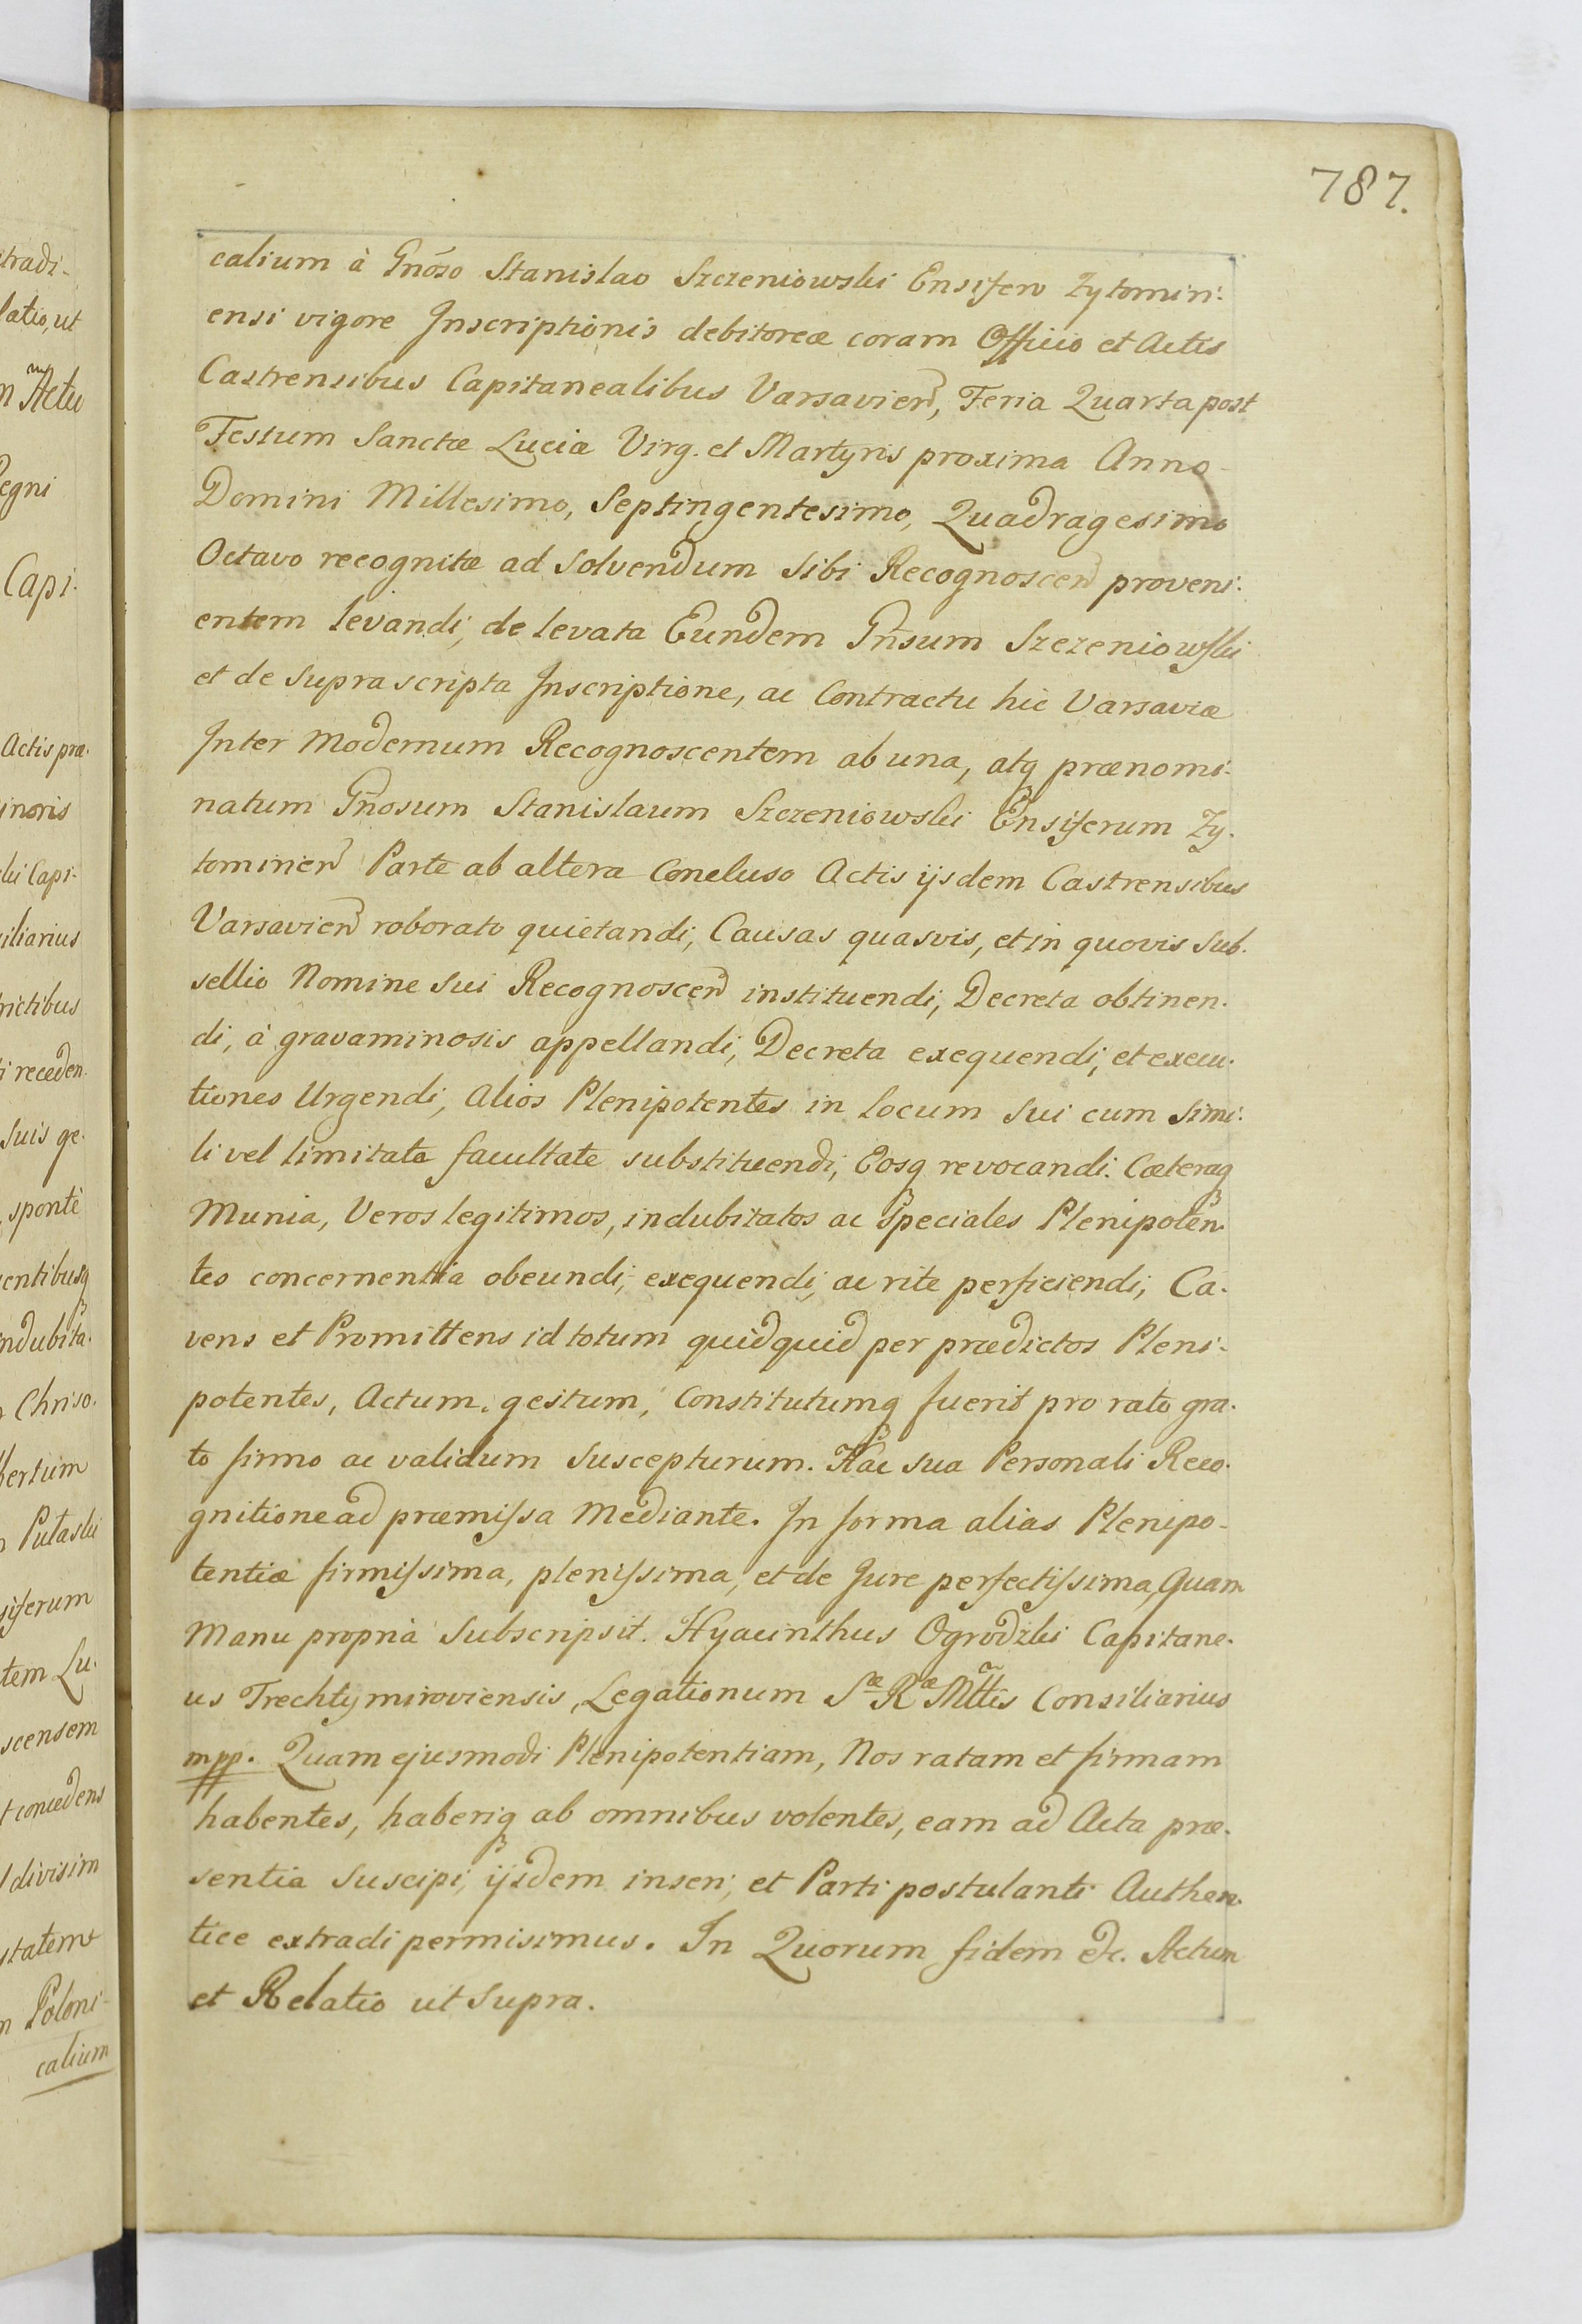 787.
calium à Gnõso Stanislao Szczeniowski Ensifero Zytomiri-
ensi vigore Inscriptionis debitoreæ coram Officio et Actis
Castrensibus Capitanealibus Varsavien, Feria Quarta post
Festum Sanctæ Luciæ Virg. et Martyris proxima Anno
Domini Millesimo, Septingentesimo, Quadragesimo
Octavo recognitæ ad solvendum sibi Recognoscen proveni-
entem levandi, de levata Eundem Gnsum Szczeniowski
et de suprascripta Inscriptione, ac Contractu hic Varsaviæ
Inter Modernum Recognoscentem ab una, atq prænomi-
natum Gnosum Stanislaum Szczeniowski Ensiferum Zy-
tomirien Parte ab altera Concluso Actis ijsdem Castrensibus
Varsavien roborato quietandi, Causas quasvis, et in quovis Sub-
sellio Nomine sui Recognoscen instituendi, Decreta obtinen-
di, à gravaminosis appellandi, Decreta exequendi, et execu-
tiones Urgendi, Alios Plenipotentes in locum sui cum simi-
li vel limitata facultate substituendi, Eosq revocandi. Cæteraq
Munia, Veros legitimos, indubitatos ac speciales Plenipoten-
tes concernentia obeundi, exequendi, ac rite perficiendi, Ca-
vens et Promittens id totum quidquid per prædictos Pleni-
potentes, Actum, gestum, Constitutumq fuerit pro rato gra-
to firmo ac validum suscepturum. Hac sua Personali Reco-
gnitione ad præmissa Mediante. In forma alias Plenipo-
tentiæ firmissima, plenissima, et de Jure perfectissima, Quam
Manu propria Subscripsit. Hyacinthus Ogrodzki Capitane-
us Trechtymiroviensis, Legationum Sæ Ræ Mttis Consiliarius
mpp. Quam ejusmodi Plenipotentiam, Nos ratam et firmam
habentes, haberiq ab omnibus volentes, eam ad Acta præ-
sentia suscipi, ijsdem inseri, et Parti postulanti Authen-
tice extradi permisimus. In Quorum fidem &c. Actum
et Relatio ut supra.